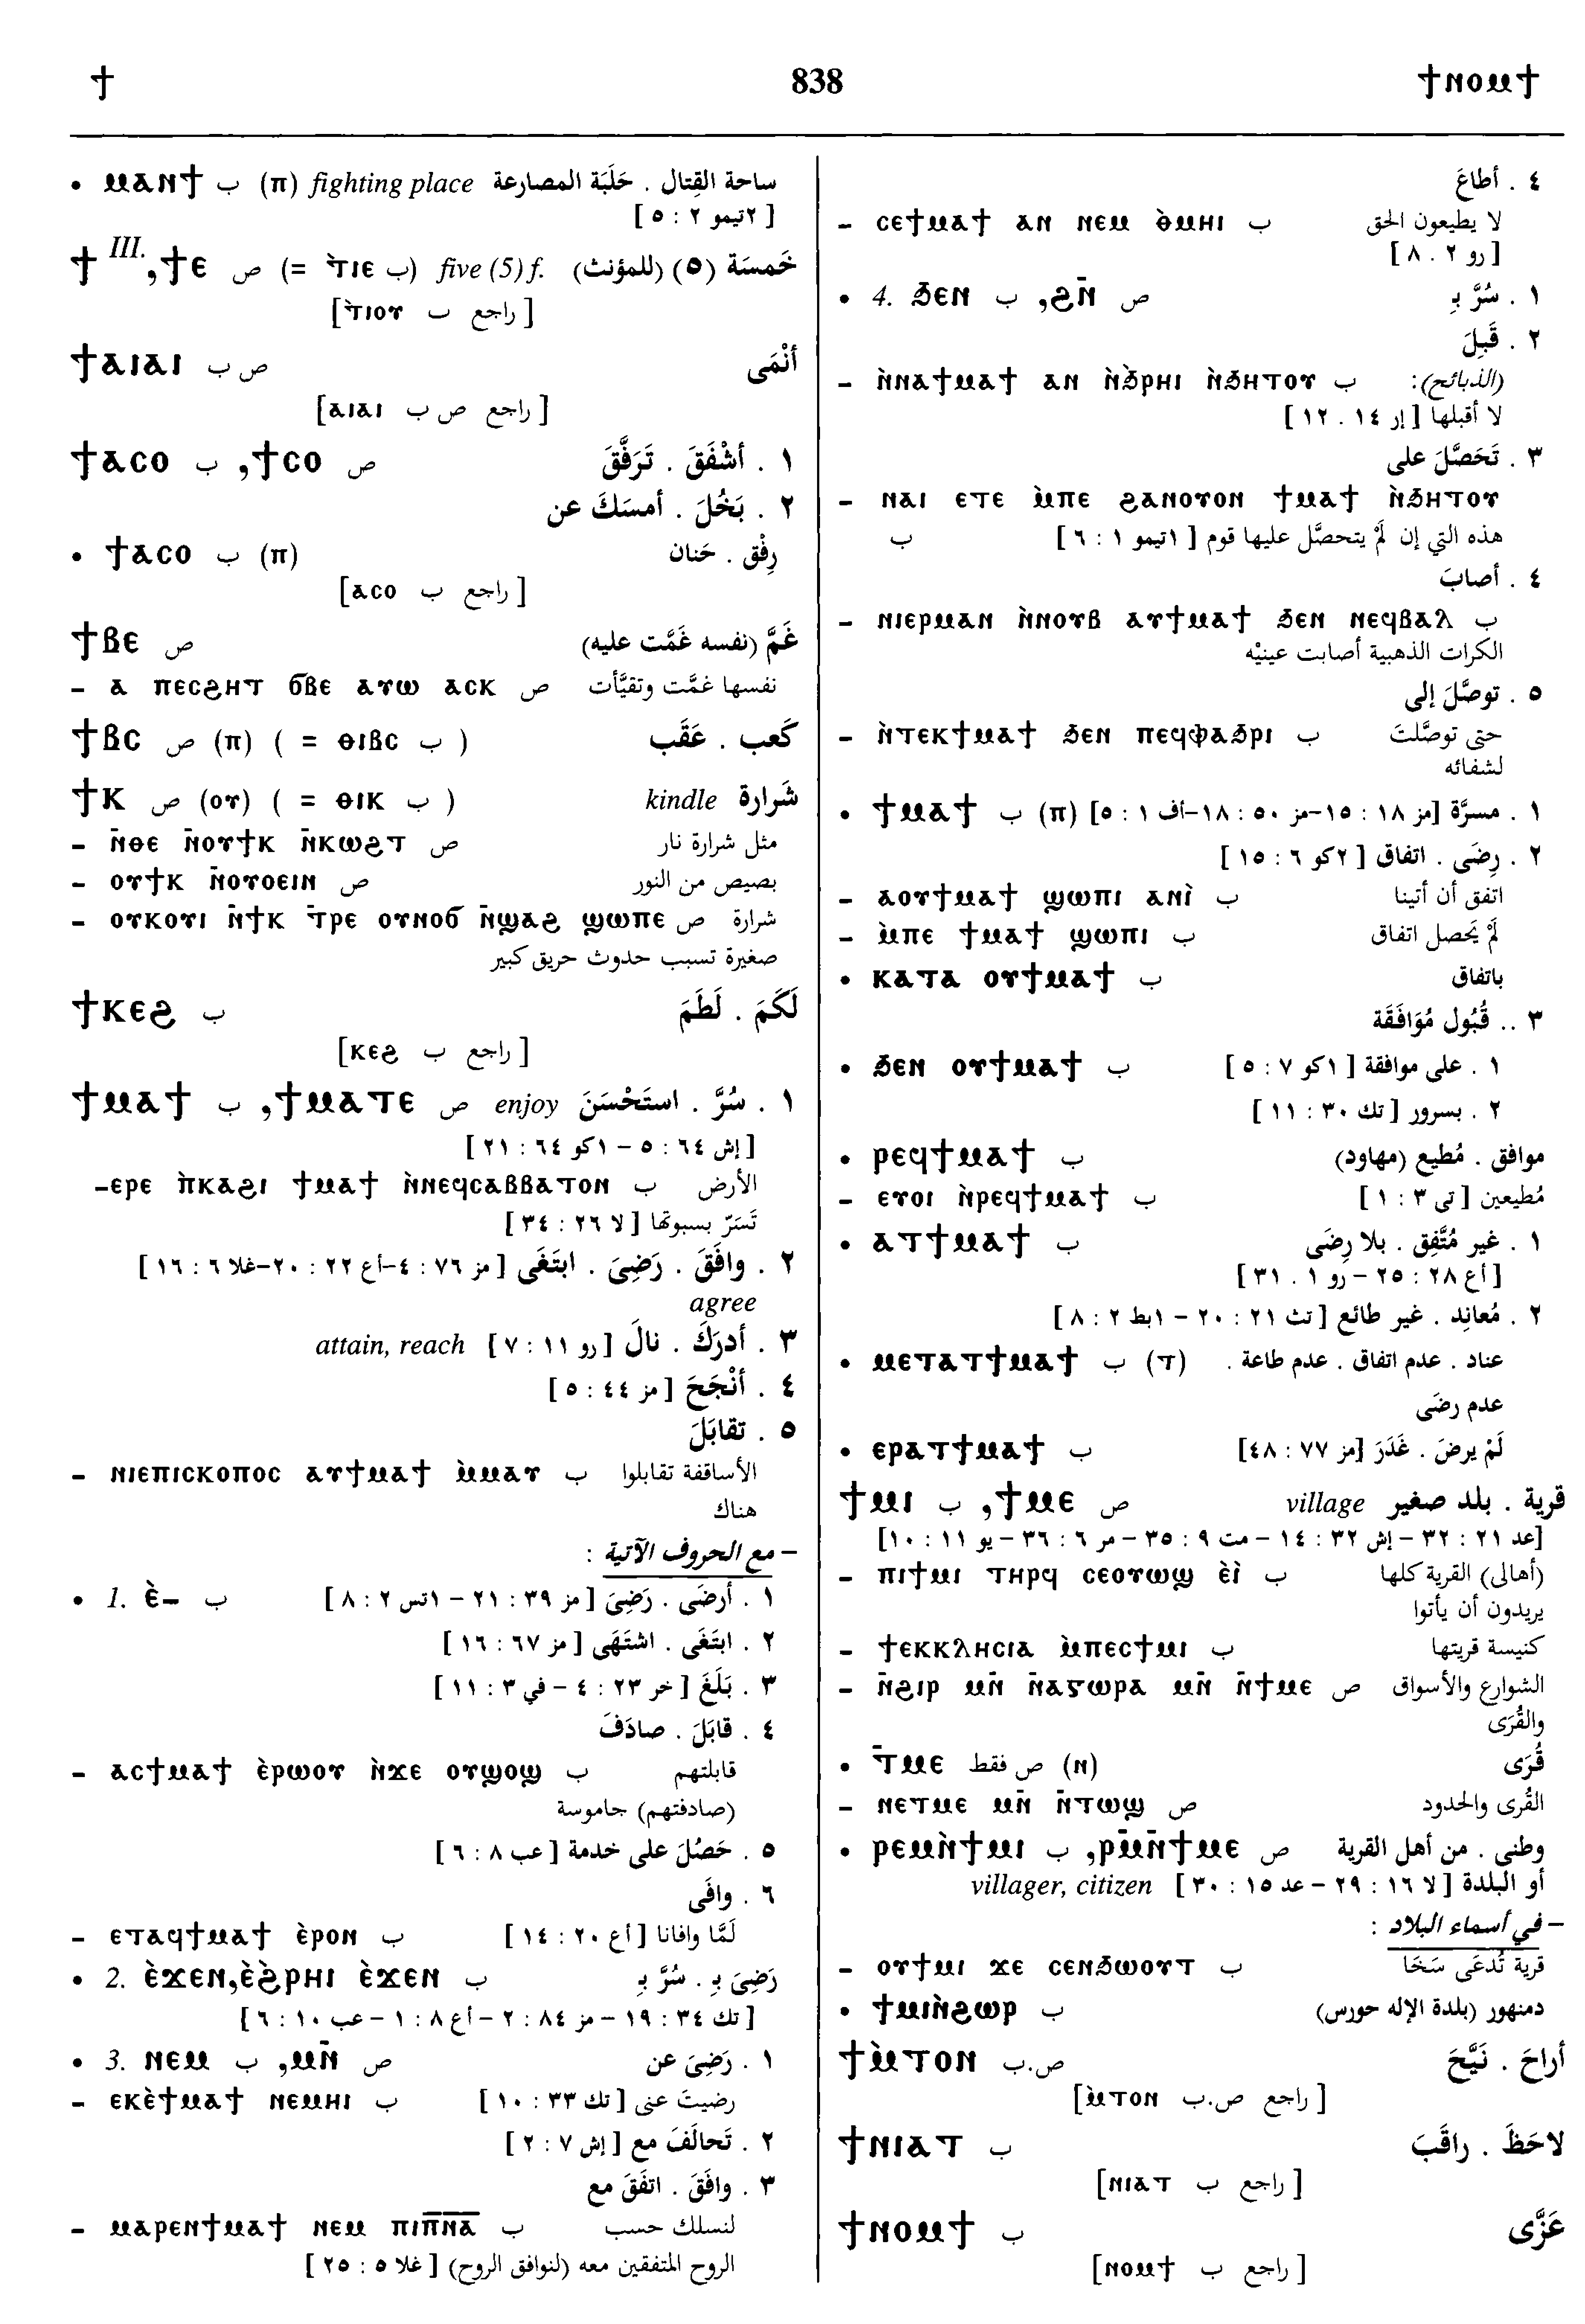 ϯ 838 ϯⲛⲟⲙϯ
• ⲙⲁⲛϯ ب (ⲡ) fighting place ساحة القِتال . حَلَبَة المصارعة
[ ٢تيمو ٢ : ٥ ]
ϯ III. ,ϯⲉ ص (= ϯ̀ⲓⲉ ب) five (5) f. خَمسَة (٥) (للمؤنث)
[ راجع ب ϯ̀ⲟⲩ]
ϯⲁⲓⲁⲓ ص ب أنْمَى
[ راجع ص ب ⲁⲓⲁⲓ]
ϯⲁⲥⲟ ب ,ϯⲥⲟ ص ١ . أشْفَقَ . تَرَفَّقَ
٢ . بَخُلَ . أمسَكَ عن
• ϯⲁⲥⲟ ب (ⲡ) رِفْق . حَنان
[ راجع ب ⲁⲥⲟ]
ϯⲃⲉ ص غَمَّ (نفسه غَمَّت عليه)
– ⲁ ⲡⲉⲥϩⲏⲧ ϭⲃⲉ ⲁⲩⲱ ⲁⲥⲕ ص نفسها غمَّت وتقيَّأت
ϯⲃⲥ ص (ⲡ) ( = ⲑⲓⲃⲥ ب ) كَعب . عَقَب
ϯⲕ ص (ⲟⲩ) ( = ⲑⲓⲕ ب ) kindle شَرارة
– ⲛ̄ⲑⲉ ⲛ̄ⲟⲩϯⲕ ⲛ̄ⲕⲱϩⲧ ص مثل شرارة نار
– ⲟⲩϯⲕ ⲛ̄ⲟⲩⲟⲉⲓⲛ ص بصيص من النور
– ⲟⲩⲕⲟⲩⲓ ⲛ̄ϯⲕ ⲧ̄ⲣⲉ ⲟⲩⲛⲟϭ ⲛ̄ϣⲁϩ ϣⲱⲡⲉ ص شرارة
صغيرة تسبب حدوث حريق كبير
ϯⲕⲉϩ ب لَكَمَ . لَطَمَ
[ راجع ب ⲕⲉϩ]
ϯⲙⲁϯ ب ,ϯⲙⲁⲧⲉ ص enjoy ١ . سُرَّ . استَحْسَنَ
[ إش ٦٤ : ٥ – ١كو ٦٤ : ٢١ ]
–ⲉⲣⲉ ⲡ̀ⲕⲁϩⲓ ϯⲙⲁϯ ⲛ̀ⲛⲉϥⲥⲁⲃⲃⲁⲧⲟⲛ ب الأرض
تَسَرّ بسبوتها [ لا ٢٦ : ٣٤ ]
٢ . وافَقَ . رَضِيَ . ابتَغَى [ مز ٧٦ : ٤–أع ٢٢ : ٢٠–غلا ٦ : ١٦ ]
agree
٣ . أدرَكَ . نالَ [ رو ١١ : ٧ ] attain, reach
٤ . أنْجَحَ [ مز ٤٤ : ٥ ]
٥ . تقابَلَ
– ⲛⲓⲉⲡⲓⲥⲕⲟⲡⲟⲥ ⲁⲩϯⲙⲁϯ ⲙ̀ⲙⲁⲩ ب الأساقفة تقابلوا
هناك
– مع الحروف الآتية :
• 1. ⲉ̀– ب ١ . أرضَى . رَضِيَ [ مز ٣٩ : ٢١ – ١تس ٢ : ٨ ]
٢ . ابتَغَى . اشتَهَى [ مز ٦٧ : ١٦ ]
٣ . بَلَغَ [ خر ٢٣ : ٤ – في ٣ : ١١ ]
٤ . قابَلَ . صادَفَ
– ⲁⲥϯⲙⲁϯ ⲉ̀ⲣⲱⲟⲩ ⲛ̀ϫⲉ ⲟⲩϣⲟϣ ب قابلتهم
(صادفتهم) جاموسة
٥ . حَصُلَ على خدمة [ عب ٨ : ٦ ]
٦ . وافَى
– ⲉⲧⲁϥϯⲙⲁϯ ⲉ̀ⲣⲟⲛ ب لَمَّا وافانا [ أع ٢٠ : ١٤ ]
• 2. ⲉ̀ϫⲉⲛ,ⲉ̀ϩ̀ⲣⲏⲓ ⲉ̀ϫⲉⲛ ب رَضِيَ بِـ . سُرَّ بِـ
[ تك ٣٤ : ١٩ – مز ٨٤ : ٢ – أع ٨ : ١ – عب ١٠ : ٦ ]
• 3. ⲛⲉⲙ ب ,ⲙⲛ̄ ص ١ . رَضِيَ عن
– ⲉⲕⲉ̀ϯⲙⲁϯ ⲛⲉⲙⲏⲓ ب رضيتَ عنى [ تك ٣٣ : ١٠ ]
٢ . تَحالَفَ مع [ إش ٧ : ٢ ]
٣ . وافَقَ . اتفَقَ مع
– ⲙⲁⲣⲉⲛϯⲙⲁϯ ⲛⲉⲙ ⲡⲓⲡ̅ⲛ̅ⲁ̅ ب لنسلك حسب
الروح المتفقين معه (لنوافق الروح) [ غلا ٥ : ٢٥ ]
٤ . أطاعَ
– ⲥⲉϯⲙⲁϯ ⲁⲛ ⲛⲉⲙ ⲑ̀ⲙⲏⲓ ب لا يطيعون الحق
[ رو ٢ . ٨ ]
• 4. ϧⲉⲛ ب ,ϩⲛ̄ ص ١ . سُرَّ بِـ
٢ . قَبِلَ
– ⲛ̀ⲛⲁϯⲙⲁϯ ⲁⲛ ⲛ̀ϧⲣⲏⲓ ⲛ̀ϧⲏⲧⲟⲩ ب (الذبائح):
لا أقبلها [ إر ١٤ . ١٢ ]
٣ . تَحَصَّلَ على
– ⲛⲁⲓ ⲉⲧⲉ ⲙ̀ⲡⲉ ϩⲁⲛⲟⲩⲟⲛ ϯⲙⲁϯ ⲛ̀ϧⲏⲧⲟⲩ
ب هذه التي إن لَمْ يتحصَّل عليها قوم [ ١تيمو ١ : ٦ ]
٤ . أصابَ
– ⲛⲓⲉⲣⲙⲁⲛ ⲛ̀ⲛⲟⲩⲃ ⲁⲩϯⲙⲁϯ ϧⲉⲛ ⲛⲉϥⲃⲁⲗ ب
الكرات الذهبية أصابت عينيْه
٥ . توصَّلَ إلى
– ⲛ̀ⲧⲉⲕϯⲙⲁϯ ϧⲉⲛ ⲡⲉϥⲫⲁϧⲣⲓ ب حتى توصَّلتَ
لشفائه
• ϯⲙⲁϯ ب (ⲡ) ١ . مسرَّة [مز ١٨ : ١٥–مز ٥٠ : ١٨–أف ١ : ٥]
٢ . رِضَى . اتفاق [ ٢كو ٦ : ١٥ ]
– ⲁⲟⲩϯⲙⲁϯ ϣⲱⲡⲓ ⲁⲛⲓ̀ ب اتفق أن أتينا
– ⲙ̀ⲡⲉ ϯⲙⲁϯ ϣⲱⲡⲓ ب لَمْ يَحصل اتفاق
• ⲕⲁⲧⲁ ⲟⲩϯⲙⲁϯ ب باتفاق
٣ .. قُبُول مُوَافَقَة
• ϧⲉⲛ ⲟⲩϯⲙⲁϯ ب ١ . على موافقة [ ١كو ٧ : ٥ ]
٢ . بسرور [ تك ٣٠ : ١١ ]
• ⲣⲉϥϯⲙⲁϯ ب موافق . مُطيع (مهاود)
– ⲉⲩⲟⲓ ⲛ̀ⲣⲉϥϯⲙⲁϯ ب مُطيعين [ تى ٣ : ١ ]
• ⲁⲧϯⲙⲁϯ ب ١ . غير مُتَّفِق . بلا رِضَى
[ أع ٢٨ : ٢٥ – رو ١ . ٣١ ]
٢ . مُعانِد . غير طائع [ تث ٢١ : ٢٠ – ١بط ٢ : ٨ ]
• ⲙⲉⲧⲁⲧϯⲙⲁϯ ب (ⲧ) عناد . عدم اتفاق . عدم طاعة .
عدم رضَى
• ⲉⲣⲁⲧϯⲙⲁϯ ب لَمْ يرضَ . غَدَرَ [مز ٧٧ : ٤٨]
ϯⲙⲓ ب ,ϯⲙⲉ ص village قرية . بلد صغير
[عد ٢١ : ٣٢ – إش ٣٢ : ١٤ – مت ٩ : ٣٥ – مر ٦ : ٣٦ – يو ١١ : ١٠]
– ⲡⲓϯⲙⲓ ⲧⲏⲣϥ ⲥⲉⲟⲩⲱϣ ⲉ̀ⲓ̀ ب (أهالى) القرية كلها
يريدون أن يأتوا
– ϯⲉⲕⲕⲗⲏⲥⲓⲁ ⲙ̀ⲡⲉⲥϯⲙⲓ ب كنيسة قريتها
– ⲛ̄ϩⲓⲣ ⲙⲛ̄ ⲛ̄ⲁⲅⲱⲣⲁ ⲙⲛ̄ ⲛ̄ϯⲙⲉ ص الشوارع والأسواق
والقُرَى
• ⲧ̄ⲙⲉ (ⲛ) ص فقط قُرَى
– ⲛⲉⲧⲙⲉ ⲙⲛ̄ ⲛ̄ⲧⲱϣ ص القُرى والحدود
• ⲣⲉⲙⲛ̀ϯⲙⲓ ب ,ⲣⲙ̄ⲛ̄ϯⲙⲉ ص وطنى . من أهل القرية
أو البلدة [ لا ١٦ : ٢٩ – عد ١٥ : ٣٠ ] villager, citizen
– في أسماء البلاد :
– ⲟⲩϯⲙⲓ ϫⲉ ⲥⲉⲛϧⲱⲟⲩⲧ ب قرية تُدعَى سَخَا
• ϯⲙⲓⲛ̀ϩⲱⲣ ب دمنهور (بلدة الإله حورس)
ϯⲙ̀ⲧⲟⲛ ص.ب أراحَ . نَيَّحَ
[ راجع ص.ب ⲙ̀ⲧⲟⲛ]
ϯⲛⲓⲁⲧ ب لاحَظَ . راقَبَ
[ راجع ب ⲛⲓⲁⲧ]
ϯⲛⲟⲙϯ ب عَزَّى
[ راجع ب ⲛⲟⲙϯ]